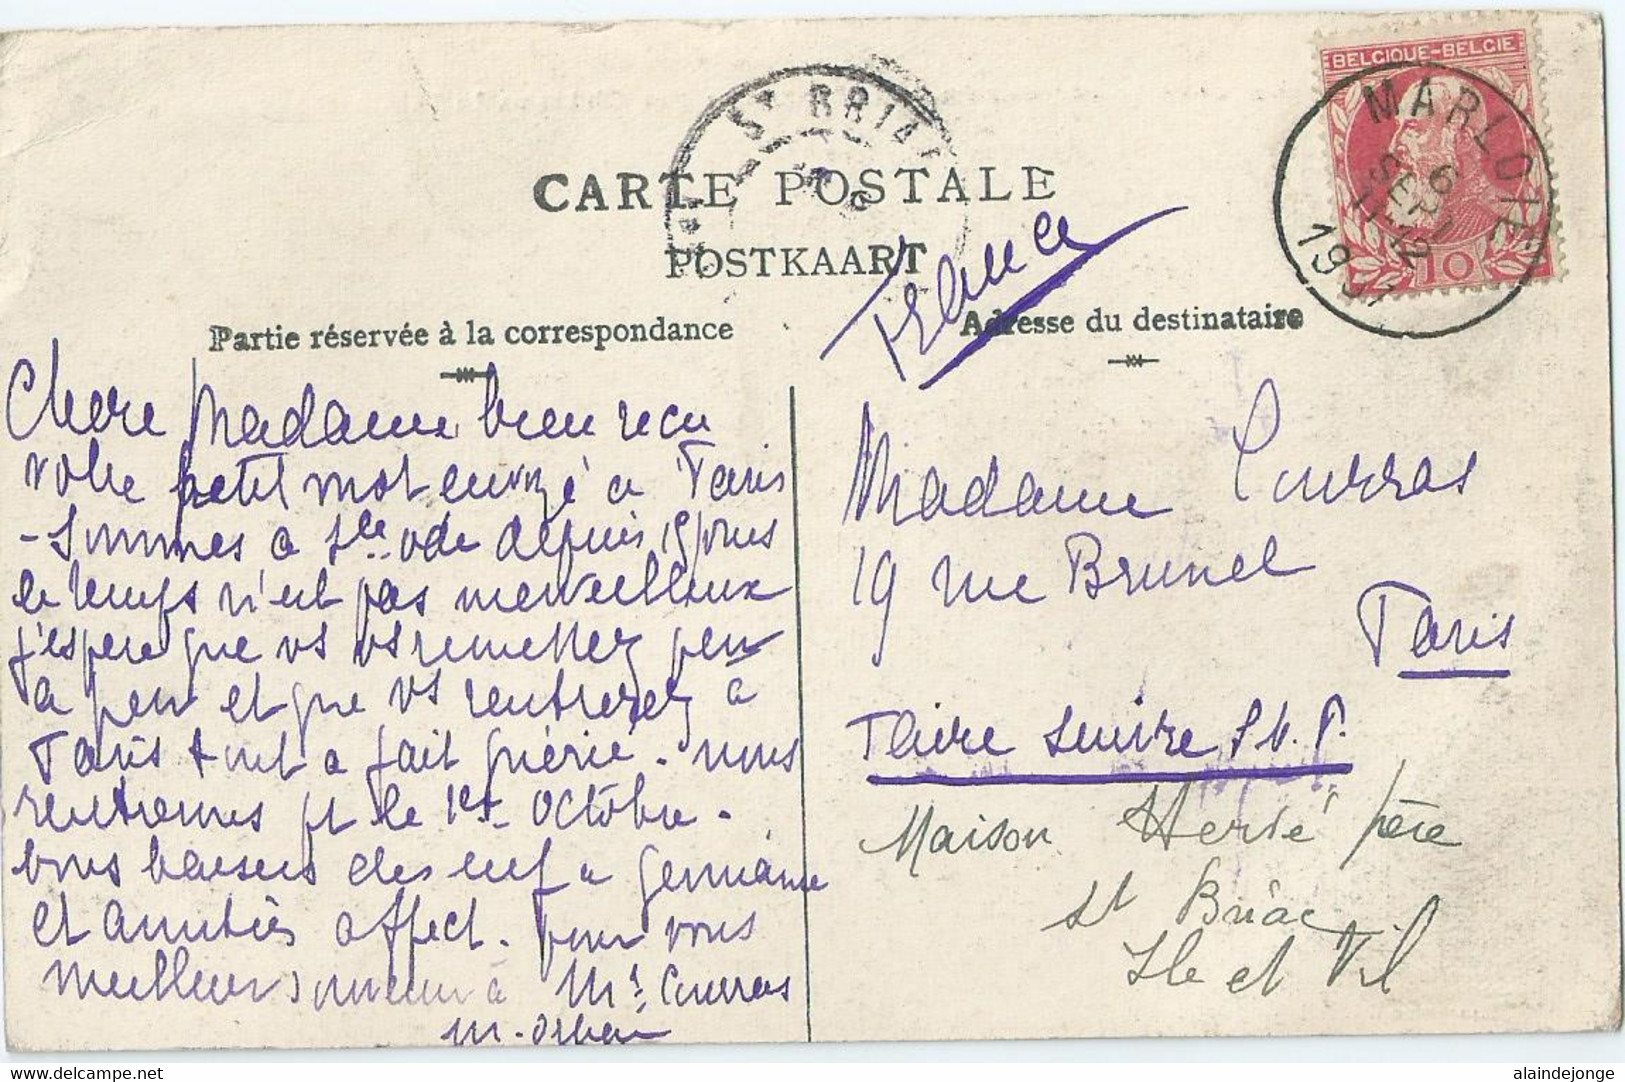 BELGIQUE-BELGIE
10
MARLOIE
6
SEPT
12
19
St BRIA
CARTE POSTALE
POSTKAART
France
Partie réservée à la correspondance
Adresse du destinataire
Chère Madame, bien recu
votre petit mot envoyé à Paris
- Sommes à Ste ode depuis 15 jours
le temps n'est pas merveilleux
j'espère que vs vs remettez peu
à peu et que vs rentrerez à
Paris tout à fait guérie. nous
rentrerons pr le 1er octobre.
bons baisers de à Germaine
et amitiés affect. pour vous
meilleur souvenir à Mr Courras
Madame Courras
19 rue Brunel
Paris
Faire suivre S.V.P.
Maison Hervé père
St Briac
Ile et Vil
delcampe.net
alaindejonge